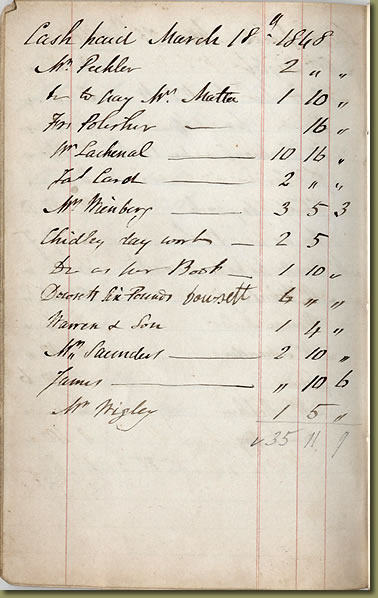 Cash paid March 18th 1848
Mr Pickler 2 〃 〃
Do to pay Mr Matta 1 10 〃
Polisher — 16 〃
Mr Lachenal — 10 16 〃
Jas Card — 2 〃 〃
Mr Nienberg — 3 5 3
Chidley day work — 2 5
Do as per Book — 1 10 〃
Dowsett Six Pounds Dowsett 6 〃 〃
Warren & Son 1 4 〃
Mrs Saunders — 2 10 〃
James — 〃 10 6
Mr Wigley 1 5 〃
35 11 9